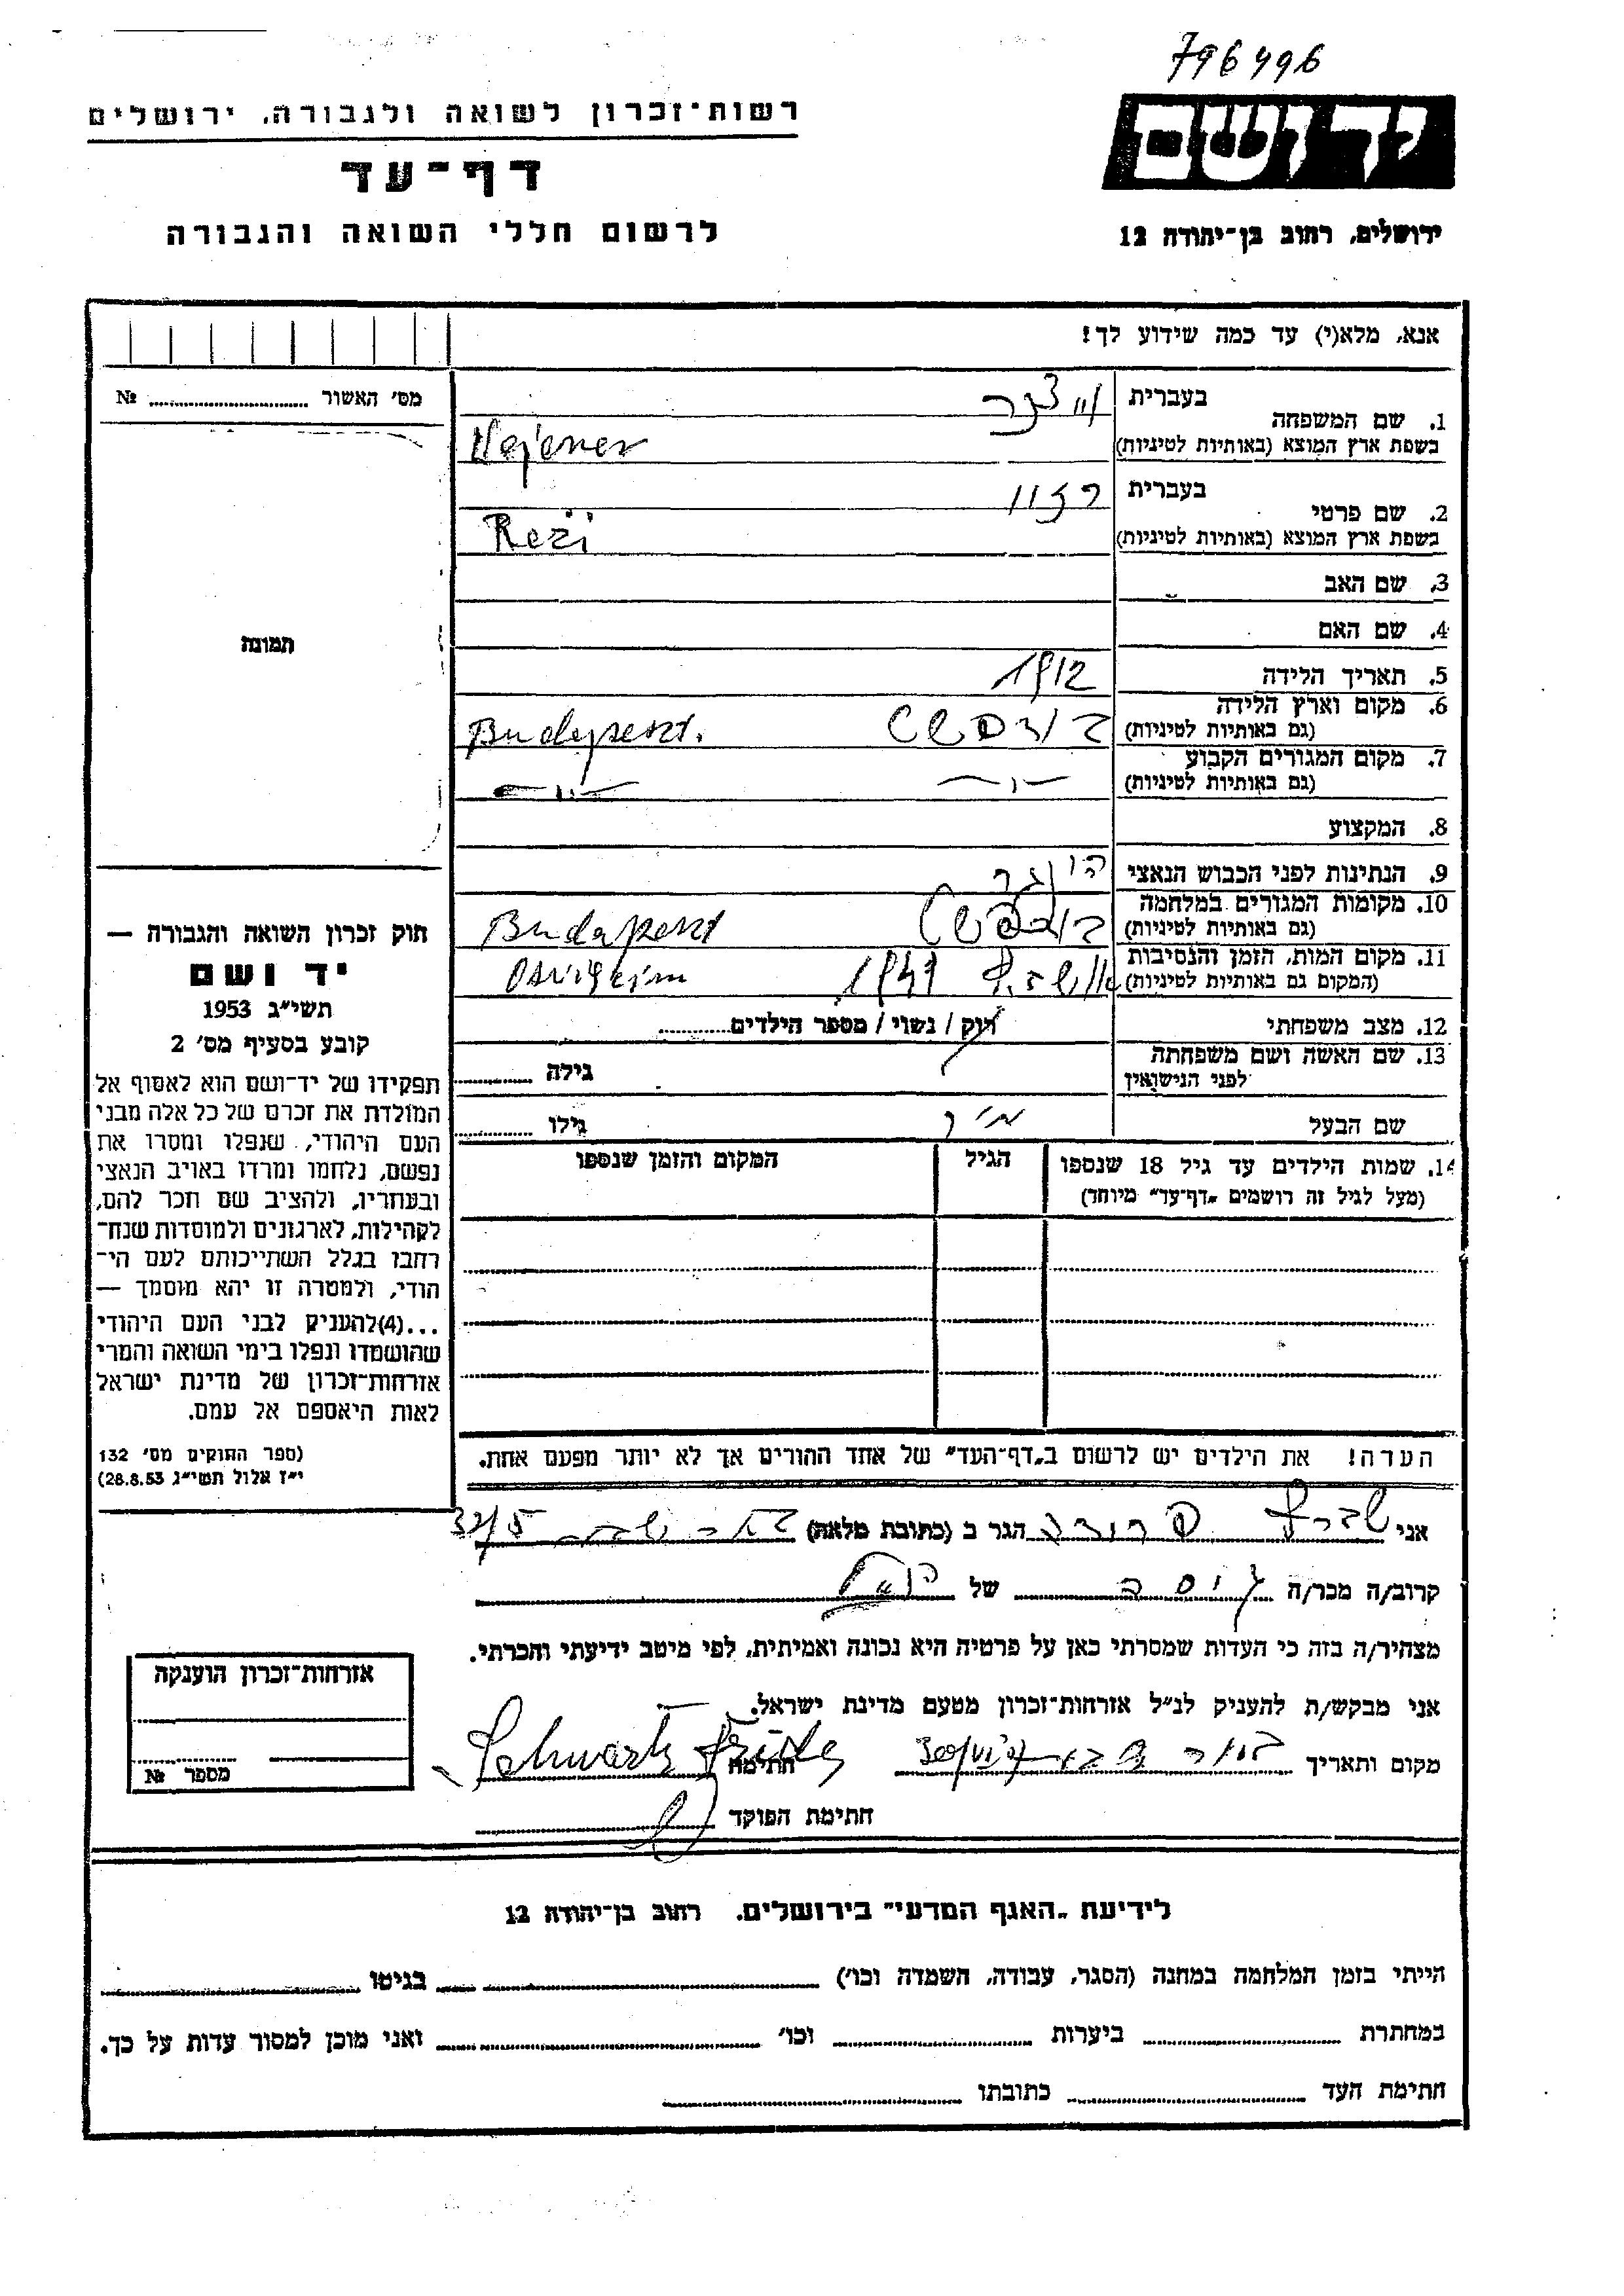 796496
רשות־זכרון לשואה ולגבורה, ירושלים
יד ושם
דף־עד
לרשום חללי השואה והגבורה
ירושלים, רחוב בן־יהודה 12
אנא, מלא(י) עד כמה שידוע לך!
מס׳ האשור № 
1. שם המשפחה
בעברית
בשפת ארץ המוצא (באותיות לטיניות)
2. שם פרטי
בעברית
בשפת ארץ המוצא (באותיות לטיניות) Rezi
3. שם האב
4. שם האם
תמונה
5. תאריך הלידה 1912
6. מקום וארץ הלידה
(גם באותיות לטיניות) בודפשט Budapeszt.
7. מקום המגורים הקבוע
(גם באותיות לטיניות) —"— —"—
8. המקצוע
9. הנתינות לפני הכבוש הנאצי
10. מקומות המגורים במלחמה
(גם באותיות לטיניות) בודפשט Budapeszt
11. מקום המות, הזמן והנסיבות
(המקום גם באותיות לטיניות)
12. מצב משפחתי רווק / נשוי / מספר הילדים
13. שם האשה ושם משפחתה
לפני הנישואין גילה
שם הבעל גילו
14. שמות הילדים עד גיל 18 שנספו
(מעל לגיל זה רושמים „דף־עד״ מיוחד)
הגיל
המקום והזמן שנספו
חוק זכרון השואה והגבורה —
יד ושם
תשי״ג 1953
קובע בסעיף מס׳ 2
תפקידו של יד־ושם הוא לאסוף אל
המולדת את זכרם של כל אלה מבני
העם היהודי, שנפלו ומסרו את
נפשם, נלחמו ומרדו באויב הנאצי
ובעוזריו, ולהציב שם וזכר להם,
לקהילות, לארגונים ולמוסדות שנח־
רבו בגלל השתייכותם לעם הי־
הודי, ולמטרה זו יהא מוסמך —
...(4)להעניק לבני העם היהודי
שהושמדו ונפלו בימי השואה והמרי
אזרחות־זכרון של מדינת ישראל
לאות היאספם אל עמם.
(ספר החוקים מס׳ 132
י״ז אלול תשי״ג 28.8.53)
הערה! את הילדים יש לרשום ב„דף־העד״ של אחד ההורים אך לא יותר מפעם אחת.
אני שורץ פרידה הגר ב (כתובת מלאה)
קרוב/ה מכר/ה גיסה של
מצהיר/ה בזה כי העדות שמסרתי כאן על פרטיה היא נכונה ואמיתית, לפי מיטב ידיעתי והכרתי.
אני מבקש/ת להעניק לנ״ל אזרחות־זכרון מטעם מדינת ישראל.
מקום ותאריך חתימה Schwartz Frida
חתימת הפוקד
אזרחות־זכרון הוענקה
מספר №
לידיעת „האגף המדעי״ בירושלים, רחוב בן־יהודה 12
הייתי בזמן המלחמה במחנה (הסגר, עבודה, השמדה וכו׳) בגיטו
במחתרת ביערות וכו׳ ואני מוכן למסור עדות על כך.
חתימת העד כתובתו